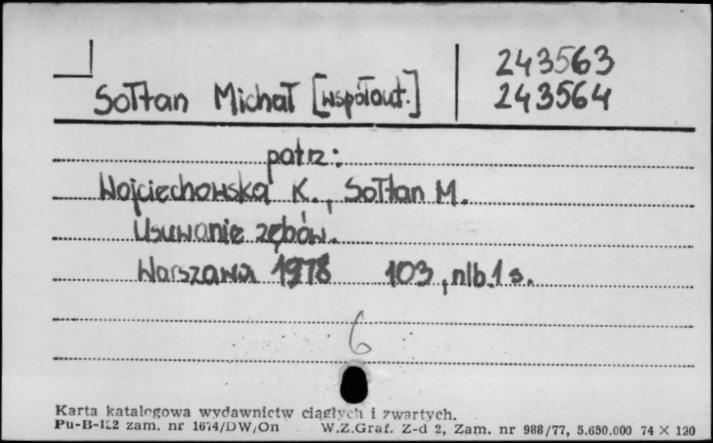 243563
Sołtan Michał [współaut.] 243564
patrz:
Wojciechowska K., Sołtan M.
Usuwanie zębów.
Warszawa 1978 103, nlb. 1 s.
6
Karta katalogowa wydawnictw ciągłych i zwartych.
Pu-B-122 zam. nr 1674/DW/On W.Z.Graf. Z-d 2, Zam. nr 988/77, 5.650.000 74 X 120